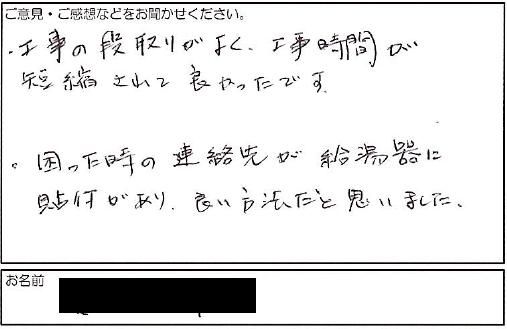 ご意見・ご感想などをお聞かせください。
・工事の段取りがよく、工事時間が
短縮されて良かったです
。困った時の連絡先が給湯器に
貼付があり、良い方法だと思いました。
お名前